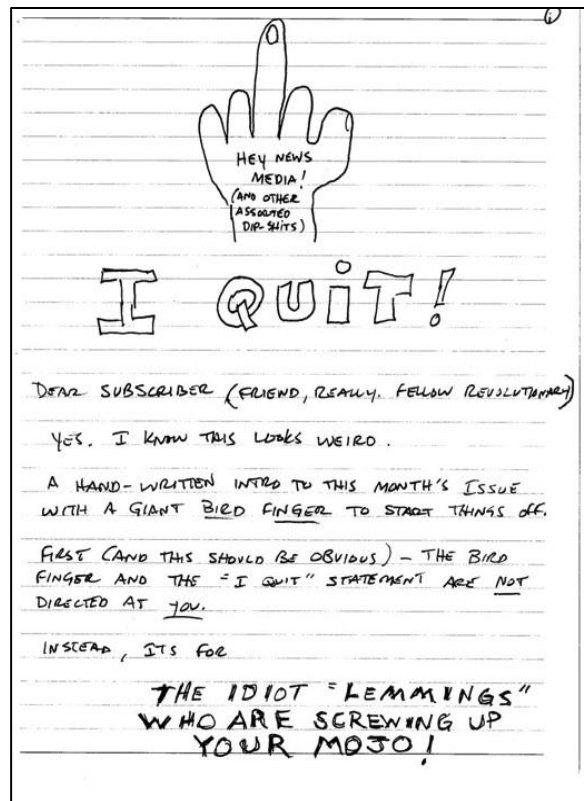 ①
HEY NEWS
MEDIA!
(AND OTHER
ASSORTED
DIP-SHITS)
I QUiT!
DEAR SUBSCRIBER (FRIEND, REALLY. FELLOW REVOLUTIONARY)
YES. I KNOW THIS LOOKS WEIRD.
A HAND-WRITTEN INTRO TO THIS MONTH'S ISSUE
WITH A GIANT BIRD FINGER TO START THINGS OFF.
FIRST (AND THIS SHOULD BE OBVIOUS) – THE BIRD
FINGER AND THE "I QUIT" STATEMENT ARE NOT
DIRECTED AT YOU.
INSTEAD, ITS FOR
THE IDIOT "LEMMINGS"
WHO ARE SCREWING UP
YOUR MOJO!